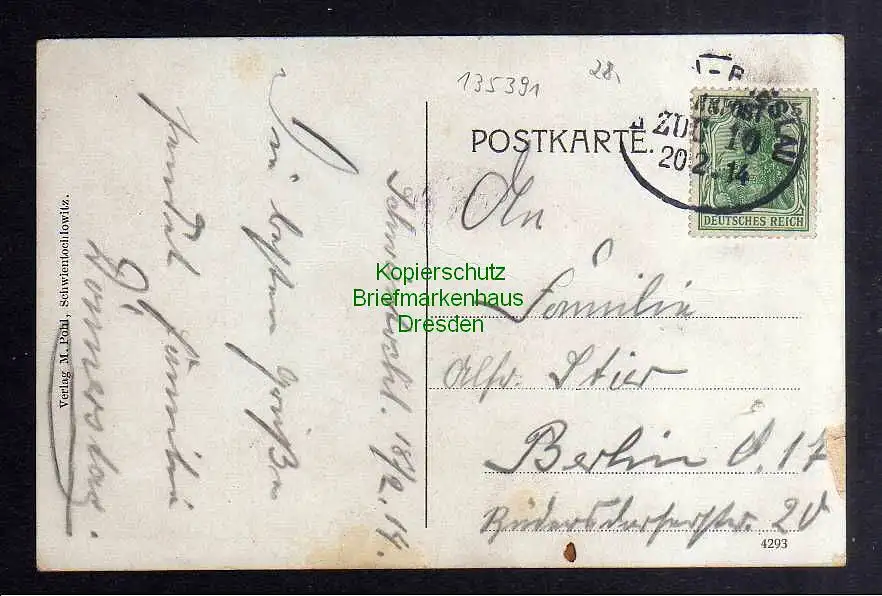 135391
28.
POSTKARTE.
BRESLAU
BAHNPOST
ZUG 10
20.2.14
5
DEUTSCHES REICH
An
Familie
Alfr. Stier
Berlin O. 17
Rüdersdorferstr. 20
4293
Schwientochl. 18/2.14.
Die besten Grüße
sendet Familie
Verlag M. Pohl, Schwientochlowitz.
Kopierschutz
Briefmarkenhaus
Dresden